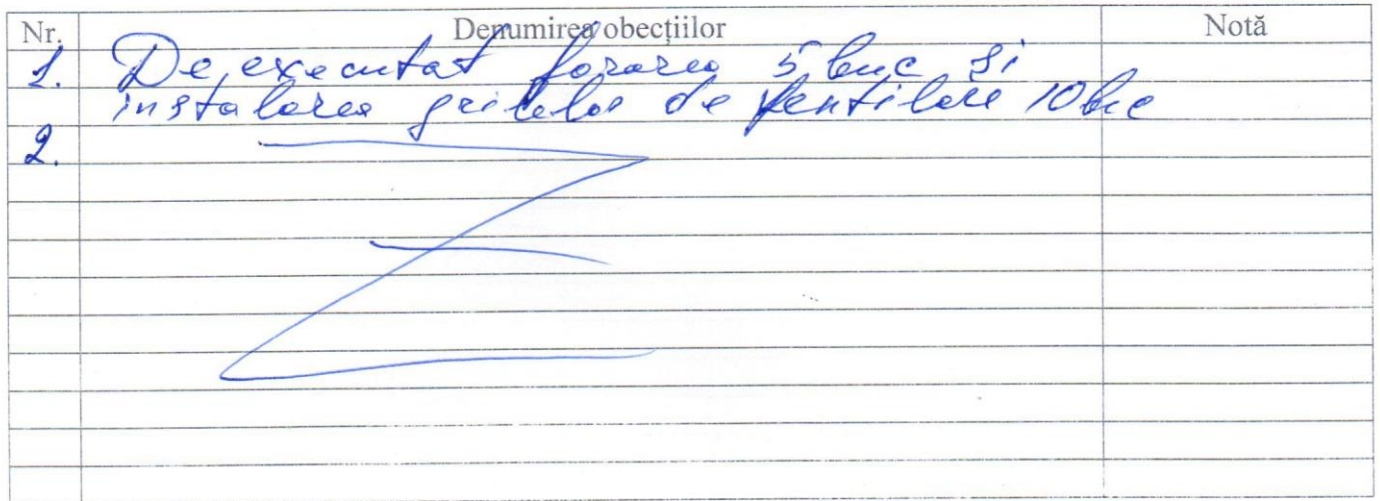 Nr. Denumirea obecțiilor Notă
1. De executat forarea 5 buc și
instalarea grilelor de ventilare 10 buc
2.